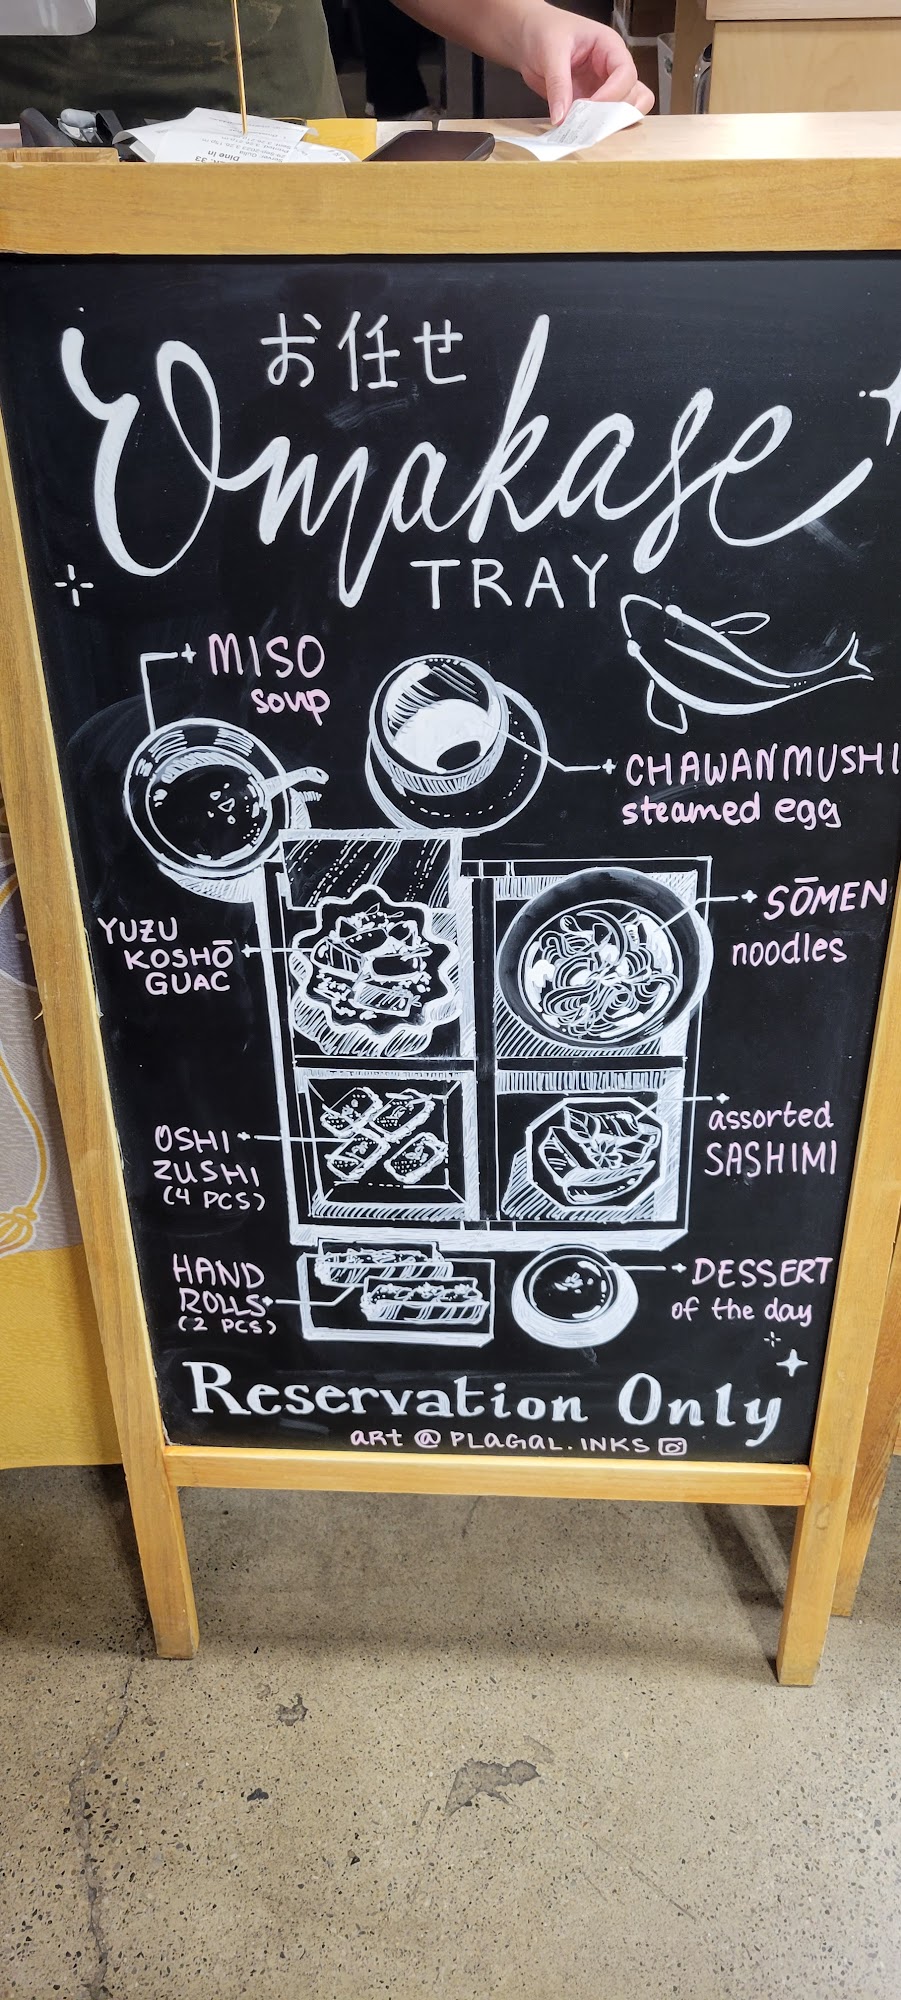 Dine In
お任せ
Omakase
TRAY
MISO
soup
CHAWANMUSHI
steamed egg
YUZU
KOSHŌ
GUAC
SŌMEN
noodles
OSHI
ZUSHI
(4 PCS)
assorted
SASHIMI
HAND
ROLLS
(2 PCS)
DESSERT
of the day
Reservation Only
ART @ PLAGAL.INKS